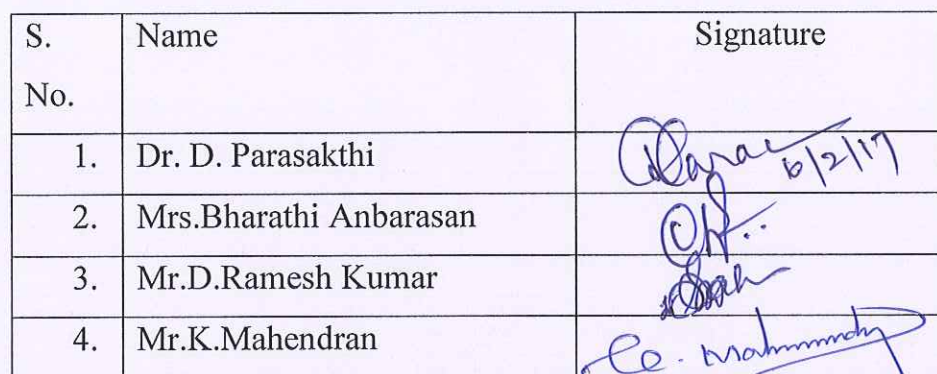 S. No. Name Signature
1. Dr. D. Parasakthi 6/2/17
2. Mrs.Bharathi Anbarasan
3. Mr.D.Ramesh Kumar
4. Mr.K.Mahendran